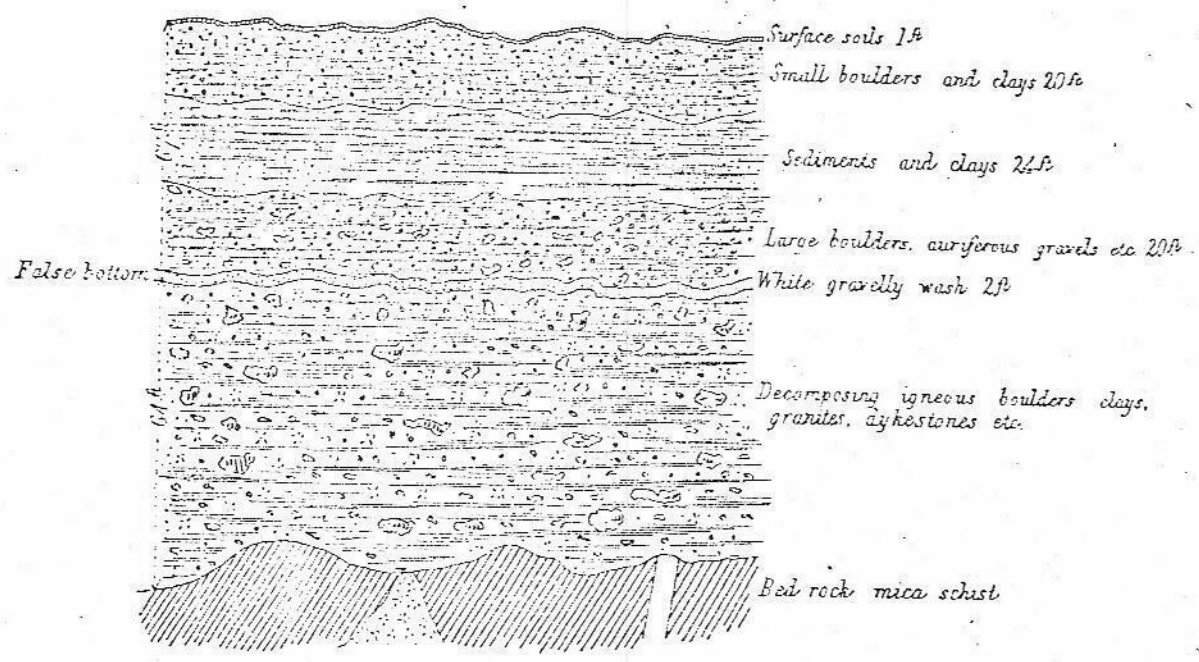 Surface soils 1ft
Small boulders and clays 20ft
Sediments and clays 24ft
Large boulders, auriferous gravels etc. 20ft
False bottom
White gravelly wash 2ft
61 ft
Decomposing igneous boulders clays,
granites, dykestones etc.
Bed rock mica schist